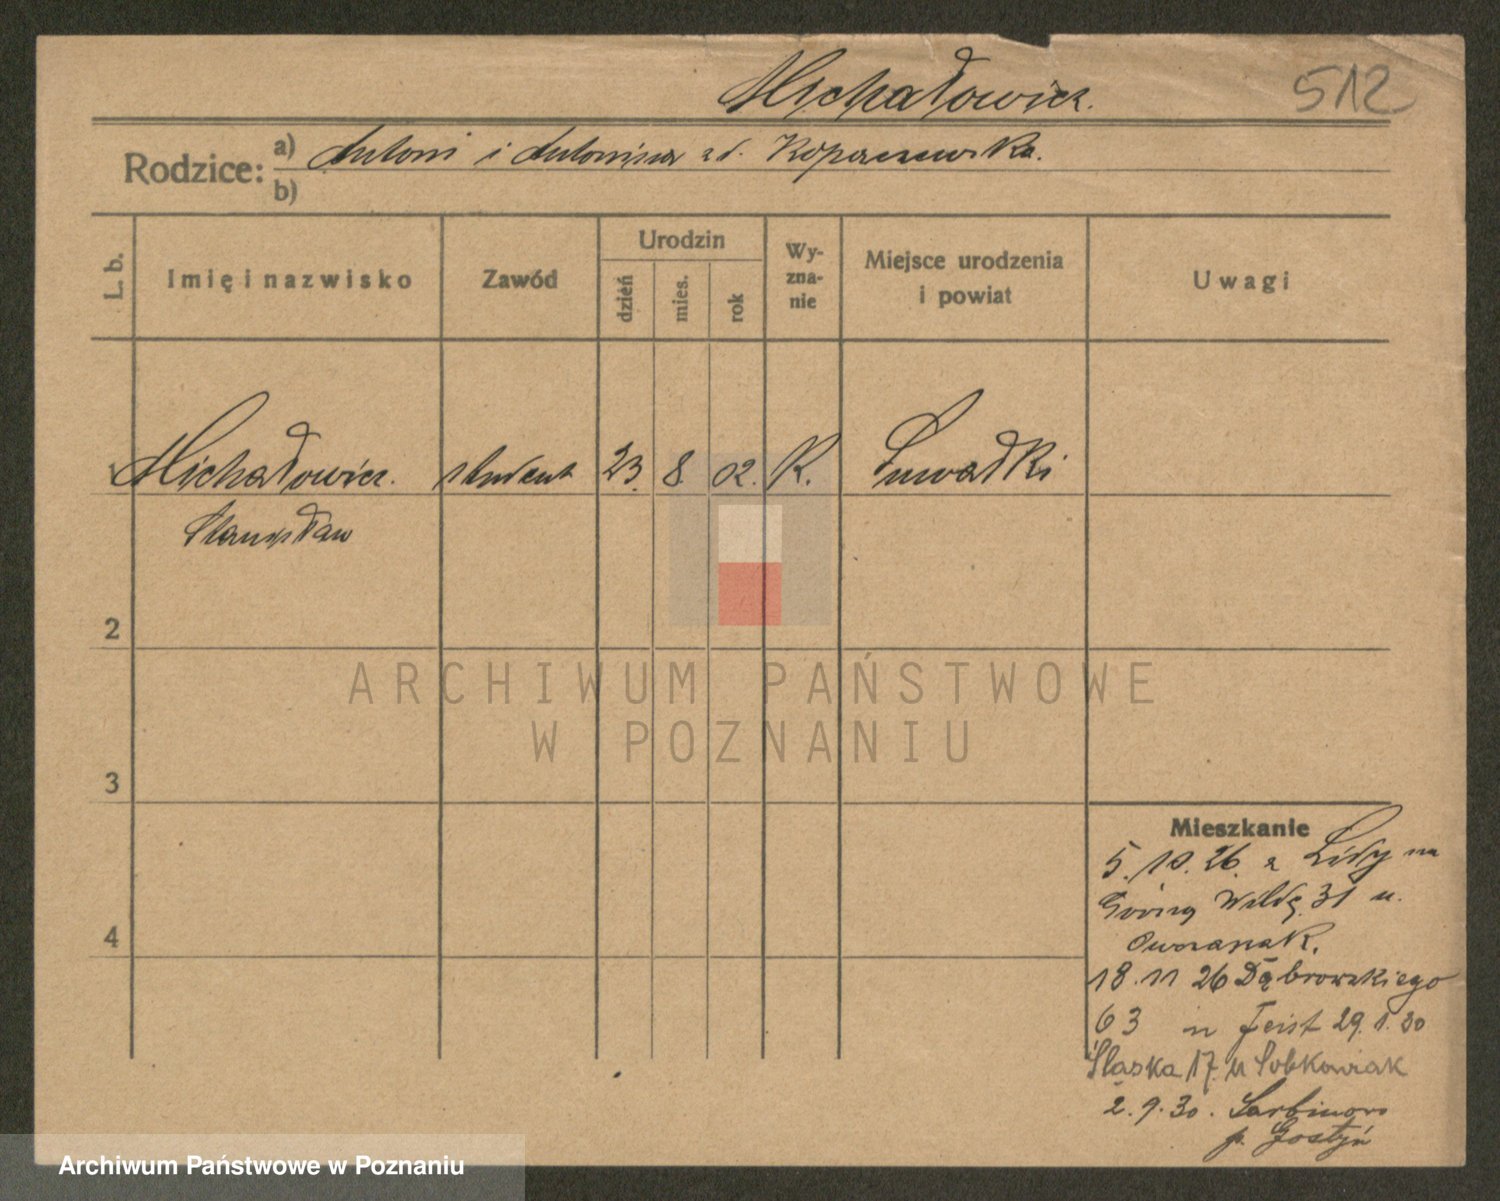 Michałowicz.
512
Rodzice: a) Antoni i Antonina zd. Kopaczewska.
b)
L. b.
Imię i nazwisko
Zawód
Urodzin
dzień
mies.
rok
Wy-
zna-
nie
Miejsce urodzenia
i powiat
Uwagi
1 Michałowicz. student 23. 8. 02. K. Suwałki
Stanisław
2
3
4
Mieszkanie
5.10.26. z Lidy na
Górną Wildę. 31 u.
Owczarzak.
18.11 26 Dąbrowskiego
63 u Feist 29.1.30
Śląska 17. u Sobkowiak
2.9.30. Sarbinowo
p. Gostyń
ARCHIWUM PAŃSTWOWE
W POZNANIU
Archiwum Państwowe w Poznaniu